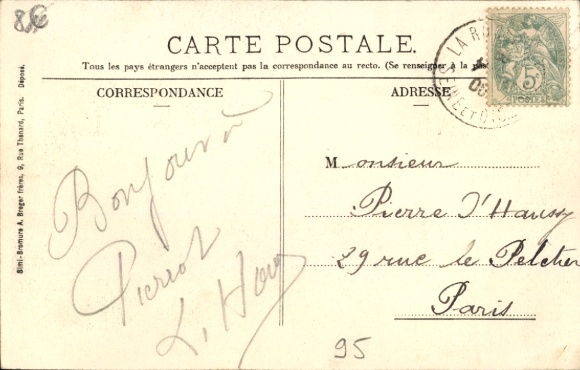 8,€
CARTE POSTALE.
Tous les pays étrangers n'acceptent pas la correspondance au recto. (Se renseigner à la
CORRESPONDANCE
ADRESSE
Simi-Bromure A. Breger frères, 9, Rue Thenard, Paris. Déposé.
LA RO
SEINE ET OISE
5c
POSTES
Bonjour à
Pierrot
L. 
Monsieur
Pierre d'Haussy
29 rue le Peletier
Paris
95